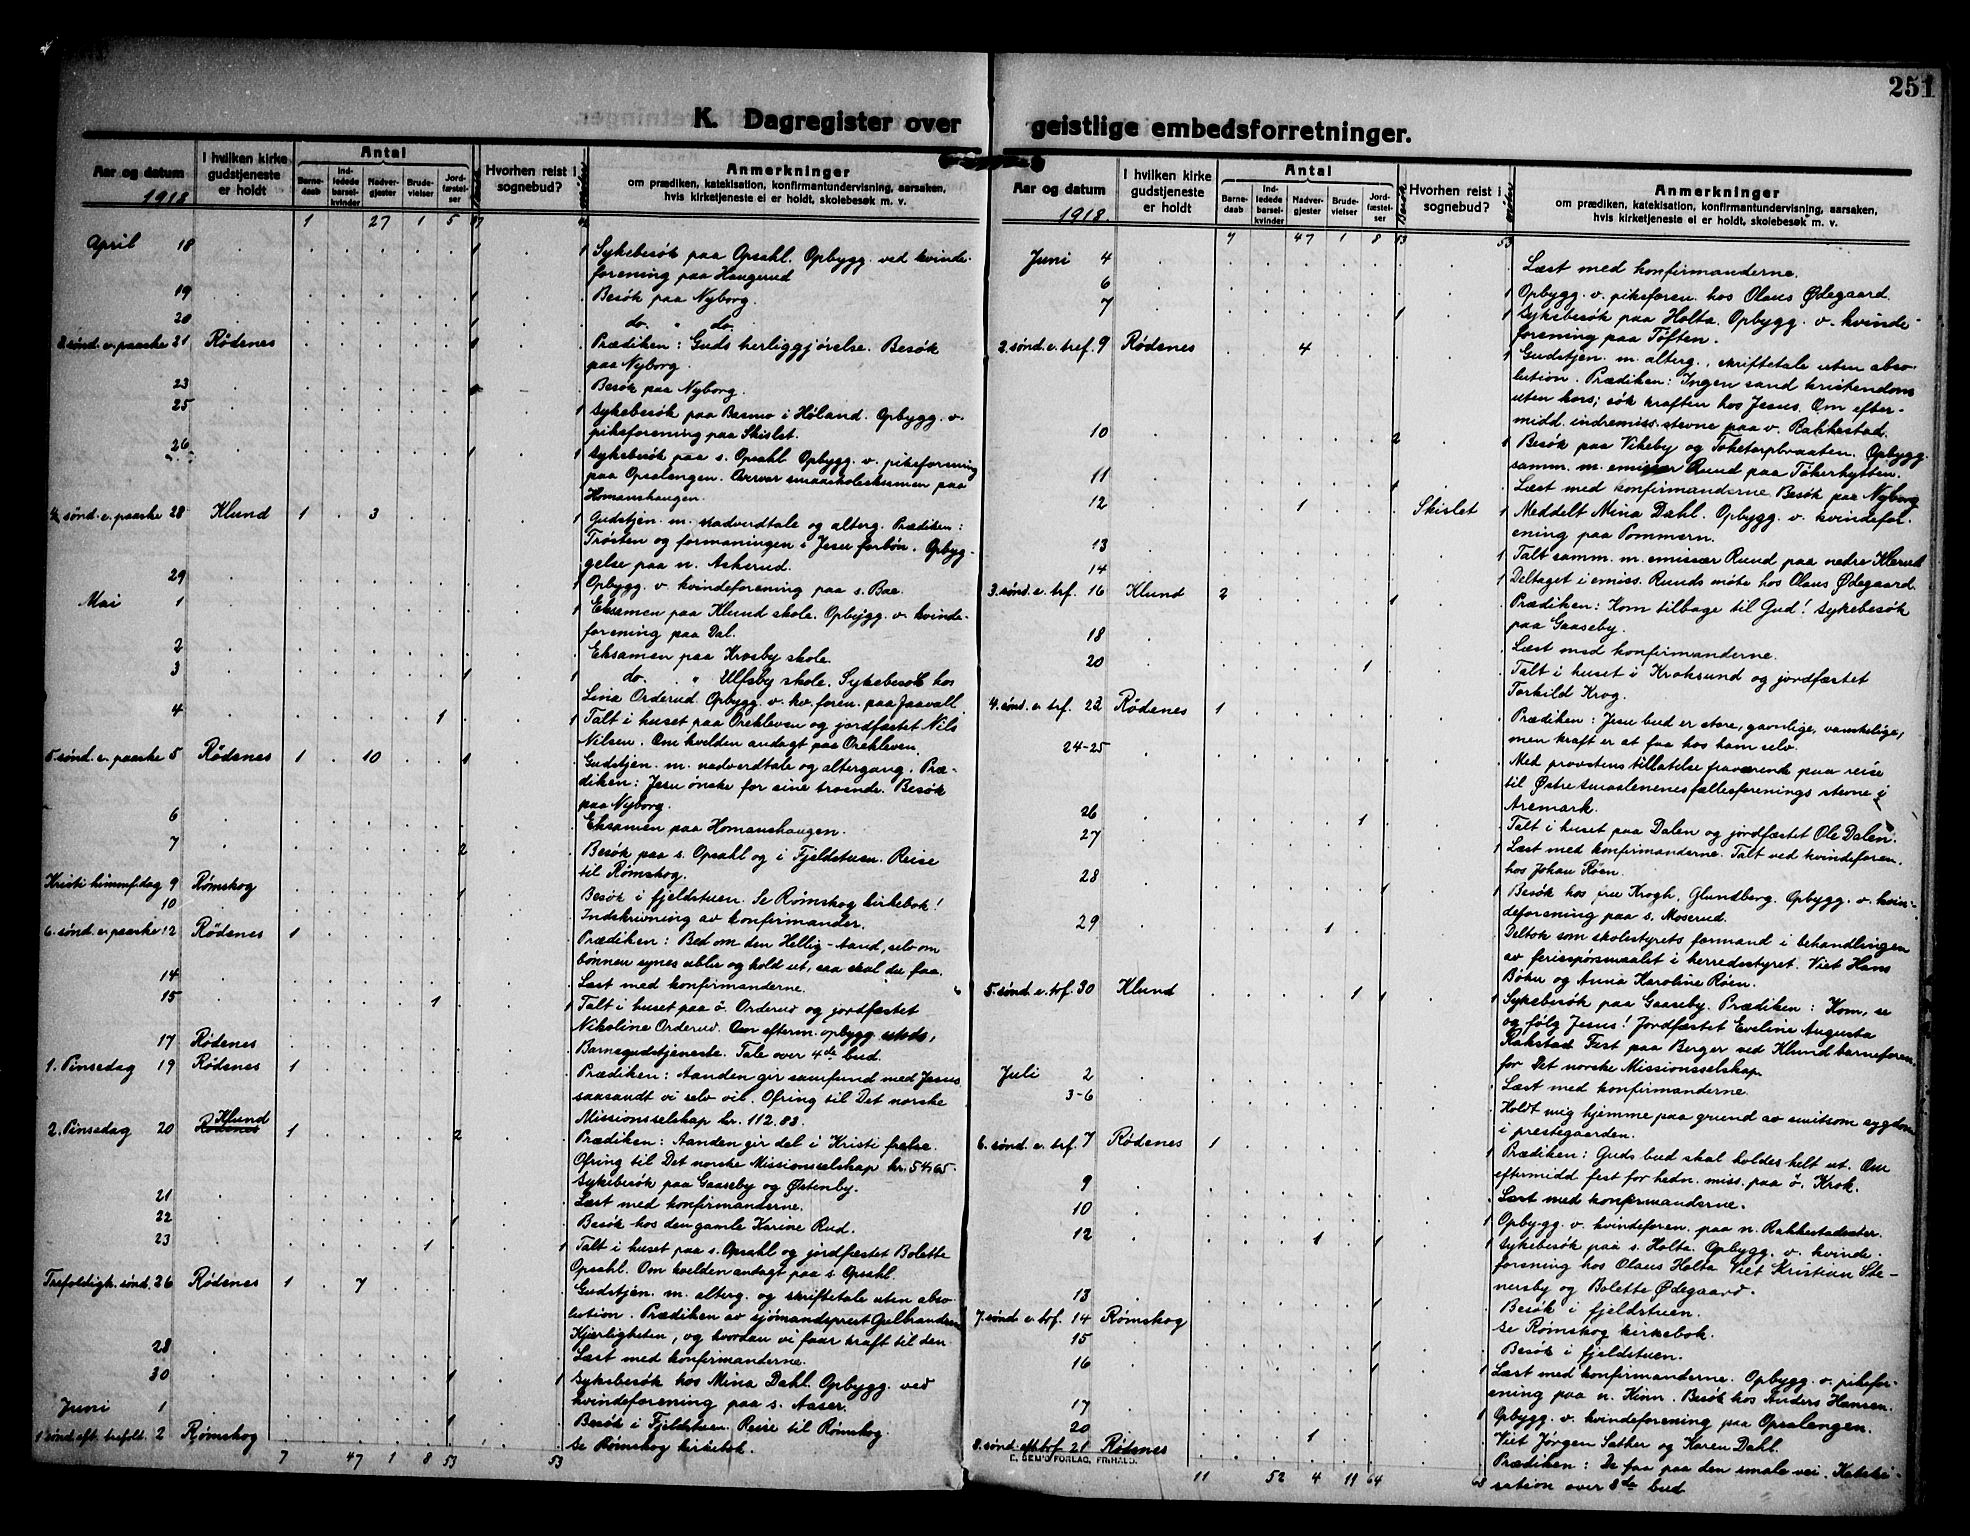 251
K. Dagregister over
Aar og datum
1918
I hvilken kirke
gudstjeneste
er holdt
Antal
Barne-
daab
Ind-
ledede
barsel-
kvinder
Nadver-
gjester
Brude-
vielser
Jord-
fæstel-
ser
Hvorhen reist i
sognebud?
Anmerkninger
om prædiken, katekisation, konfirmantundervisning, aarsaken,
hvis kirketjeneste ei er holdt, skolebesøk m. v.
1 27 1 5
April 18 1 1 Sykebesök paa Opsahl. Opbygg. ved kvinde-
forening paa Haugerud
19 1 Besök paa Nyborg.
20 1 do. " do.
3 sönd. e. paaske 21 Rödenes 1 Prædiken: Guds herliggjörelse. Besök
paa Nyborg.
23 Besök paa Nyborg.
25 1 Sykebesök paa Basmo i Höland. Opbygg. v.
pikeforening paa Skislet.
26 1 1 Sykebesök paa s. Opsahl Opbygg. v. pikeforening
paa Opsalengen. Overvar smaaskoleeksamen paa
Homanshaugen.
4 sönd. e. paaske 28 Klund 1 3 1 Gudstjen. m. nadverdtale og alterg. Prædiken:
Trösten og formaningen i Jesu forbön. Opbyg-
gelse paa n. Askerud.
29 1 Opbygg. v. kvindeforening paa s. Bae.
Mai 1 1 Eksamen paa Klund skole. Opbygg. v. kvinde-
forening paa Dal.
2 Eksamen paa Krosby skole.
3 1 1 do. " Ulfsby skole. Sykebesök hos
Lina Orderud. Opbygg. v. kv. foren. paa Jaavall
4 1 1 Talt i huset paa Orekleven og jordfæstet Nils
Nilsen. Om kvelden andagt paa Orekleven.
5 sönd. e. paaske 5 Rödenes 1 10 1 Gudstjen. m. nadverdtale og altergang. Præ-
diken: Jesu önske for sine troende. Besök
paa Nyborg.
6 Eksamen paa Homanshaugen.
7 2 Besök paa s. Opsahl og i Fjeldstuen. Reise
til Rømskog.
Kristi himmf.dag 9 Rømskog
10 1 Besök i fjeldstuen. Se Rømskog kirkebok!
Indskrivning av konfirmander.
6. sönd. e. paaske 12 Rödenes 1 Prædiken: Bed om den Hellig-Aand, selv om
bönnen synes ublu og hold ut, saa skal du faa.
14 Læst med konfirmanderne.
15 1 1 Talt i huset paa ö. Orderud og jordfæstet
Nikoline Orderud. Om efterm. opbygg. uteds,
17 Rödenes Barnegudstjeneste. Tale over 4de bud.
1. Pinsedag 19 Rödenes 1 Prædiken: Aanden gir samfund med Jesus
saasandt vi selv vil. Ofring til Det norske
Missionsselskap kr. 112.83.
2. Pinsedag 20 Klund 1 2 Prædiken: Aanden gir del i Kristi frelse.
Ofring til Det norske Missionsselskap kr. 54,65.
Sykebesök paa Gaaseby og Østenby.
21 Læst med konfirmanderne.
22 1 Besök hos den gamle Karine Rud.
23 1 1 Talt i huset paa s. Opsahl og jordfæstet Bolette
Opsahl. Om kvelden andagt paa s. Opsahl.
Trefoldigh. sönd. 26 Rödenes 1 7 Gudstjen. m. alterg. og skriftetale uten abso-
lution. Prædiken av sjömandsprest Gulbrandsen
Kjærligheten, og hvordan vi faar kraft til den
28 Læst med konfirmanderne.
30 1 1 Sykebesök hos Mina Dahl. Opbygg. ved
kvindeforening paa s. Aaser.
Juni 1 1 Besök i Fjeldstuen. Reise til Rømskog.
1 sönd. eft. trefold. 2 Rømskog Se Rømskog kirkebok.
7 47 1 8 53 53
geistlige embedsforretninger.
Aar og datum
1918.
I hvilken kirke
gudstjeneste
er holdt
Antal
Barne-
daab
Ind-
ledede
barsel-
kvinder
Nadver-
gjester
Brude-
vielser
Jord-
fæstel-
ser
Besök
Hvorhen reist i
sognebud?
Anmerkninger
om prædiken, katekisation, konfirmantundervisning, aarsaken,
hvis kirketjeneste ei er holdt, skolebesøk m. v.
7 47 1 8 53 53
Juni 4 Læst med konfirmanderne.
6 1 Opbygg. v. pikeforen. hos Olaus Ødegaard.
7 1 1 Sykebesök paa Holta. Opbygg. v. kvinde-
forening paa Töften.
2. sönd. e. tref. 9 Rödenes 4 1 Gudstjen. m. alterg., skriftetale uten abso-
lution. Prædiken: Ingen sand kristendom
uten kors; sök kraften hos Jesus. Om efter-
midd. indremiss. stevne paa v. Rakkestad.
10 2 1 Besök paa Vikeby og Toketorpbraaten. Opbygg.
samm. m. emissær Ruud paa Tökerhytten.
11 1 Læst med konfirmanderne. Besök paa Nyborg
12 1 Skislet 1 Meddelt Mina Dahl. Opbygg. v. kvindefor-
ening paa Pommern.
13 1 Talt samm. m. emissær Ruud paa nedre Klerud
14 1 Deltaget i emiss. Ruuds möte hos Olaus Ødegaard.
3. sönd. e. trf. 16 Klund 2 1 Prædiken: Kom tilbage til Gud! Sykebesök
paa Gaaseby.
18 Læst med konfirmanderne.
20 1 Talt i huset i Kroksund og jordfæstet
Torkild Krog.
4. sönd. e. trf. 23 Rödenes 1 Prædiken: Jesu bud er store, gavnlige, vanskelige,
men kraft er at faa hos ham selv.
24-25 Med provstens tillatelse fraværende paa reise
til Østre smaalenenes fællesforenings stevne i
Aremark.
26 1 Talt i huset paa Dalen og jordfæstet Ole Dalen.
27 1 Læst med konfirmanderne. Talt ved kvindeforen.
hos Johan Röen.
28 1 1 Besök hos fru Krogh, Glundberg. Opbygg. v. kvin-
deforening paa s. Moserud.
29 1 Deltok som skolestyrets formand i behandlingen
av feriespörsmaalet i herredsstyret. Viet Hans
Böhn og Anna Karoline Röen.
5. sönd. e. tref. 30 Klund 1 1 1 Sykebesök paa Gaaseby. Prædiken: Kom, se
og fölg Jesus! Jordfæstet Eveline Augusta
Rakstad Fest paa Berger ved Klund barneforen.
for Det norske Missionsselskap.
Juli 2 Læst med konfirmanderne.
3-6 Holdt mig hjemme paa grund av smitsom sygdom
i prestegaarden.
6. sönd. e. trf. 7 Rödenes 1 1 Prædiken: Guds bud skal holdes helt ut. Om
eftermidd fest for hedn. miss. paa ö. Krok.
9 Læst med konfirmanderne.
10 1 Opbygg. v. kvindeforen. paa n. Rakkestadsæter.
12 1 1 1 Sykebesök paa s. Holta. Opbygg. v. kvinde-
forening hos Olaus Holta. Viet Kristian Ste-
nersby og Bolette Ødegaard.
13 1 Besök i fjeldstuen.
7. sönd. e. tref. 14 Rømskog Se Rømskog kirkebok.
15 1 Besök i fjeldstuen.
16 1 1 Læst med konfirmanderne. Opbygg. v. pikefor-
ening paa n. Kinn. Besök hos Anders Hansen.
17 1 Opbygg. v. kvindeforening paa Opsalengen.
20 1 Viet Jörgen Sæther og Karen Dahl.
8. sönd. eft. tref. 21 Rödenes Prædiken: Du faa paa den smale vei. Kateki-
sation over 8de bud
E. SEM'S FORLAG, FR.HALD.
11 52 4 11 64 68